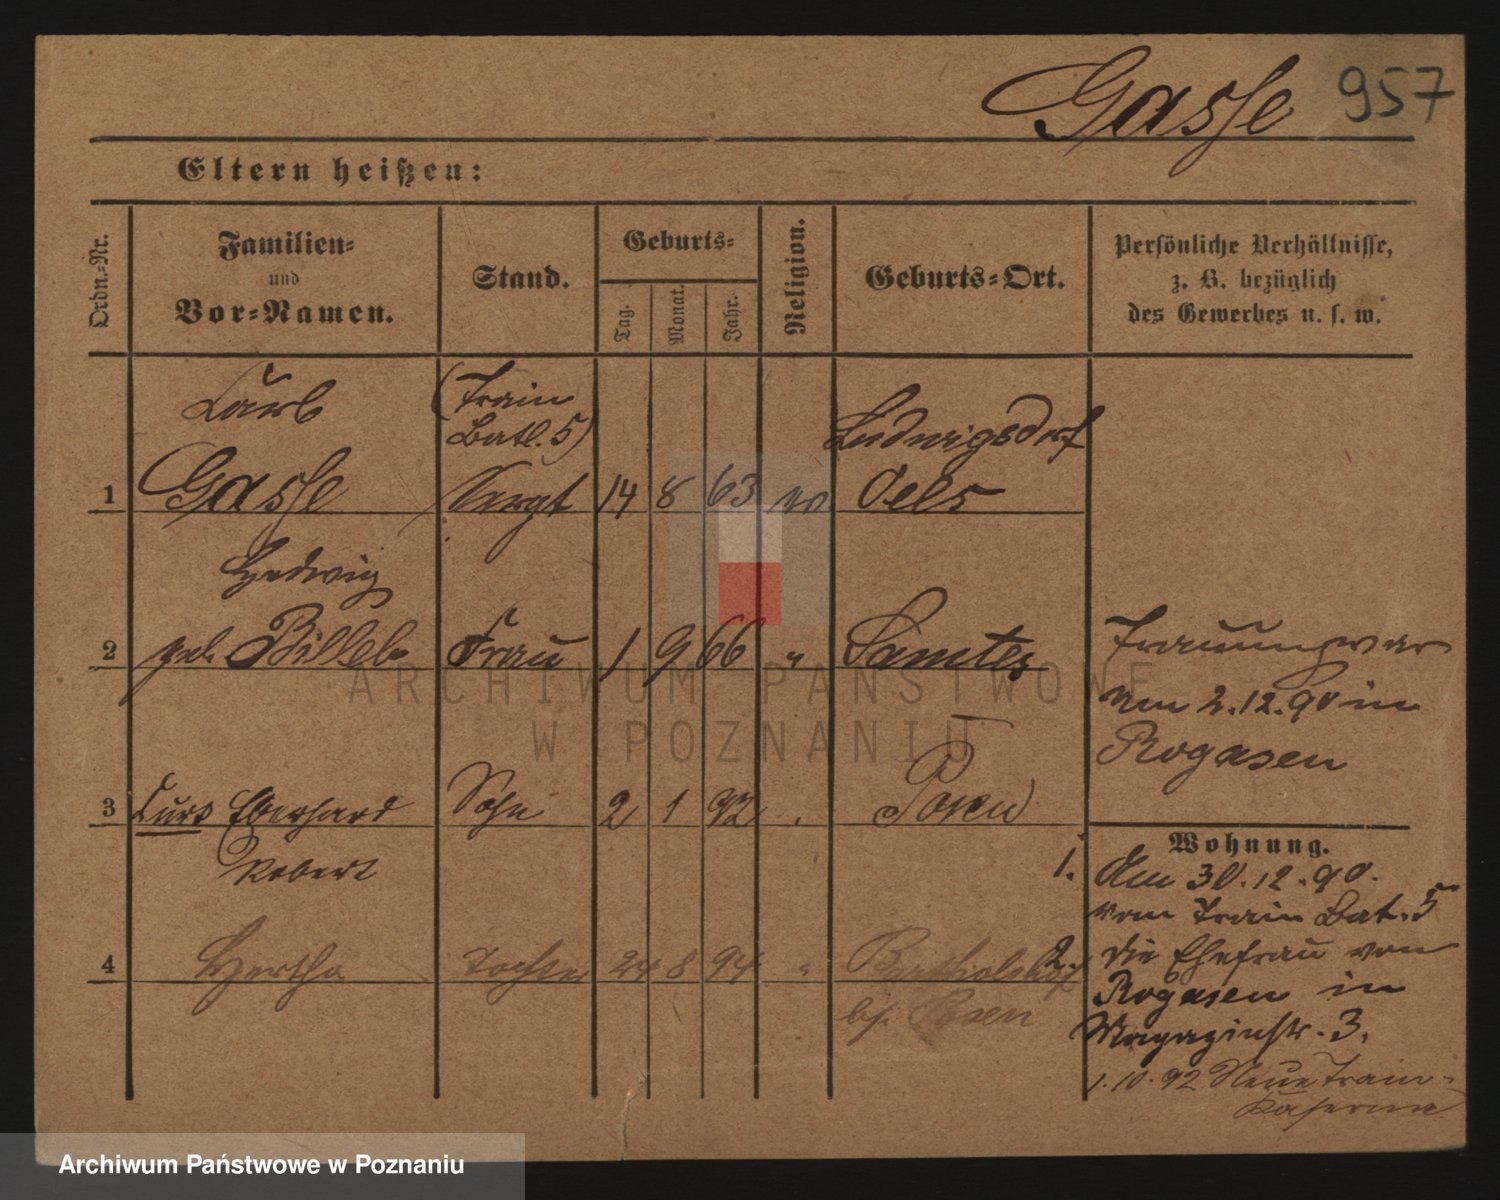 Gasse 957
Eltern heißen:
Ordn.-Nr.
Familien-
und
Vor-Namen.
Stand.
Geburts-
Tag.
Monat.
Jahr.
Religion.
Geburts-Ort.
Persönliche Verhältnisse,
z. B. bezüglich
des Gewerbes u. s. w.
(Train
Batl. 5)
Ludwigsdorf
1 Gasse Sergt 14 8 63 Oels
Hedwig
2 geb. Frau 1 9 66 " Samter
Trauung war
am 2.12.90 in
Rogasen
3 Curt Eberhard Sohn 2 1 92 " Posen
Robert
4 Hertha Tochter 24 8 94 "
b/. Posen
Wohnung.
1. Am 30.12.90.
vom Train Bat. 5
2. die Ehefrau von
Rogasen in
Magazinstr. 3.
1.10.92 Neue Train-
Kaserne
ARCHIWUM PAŃSTWOWE
W POZNANIU
Archiwum Państwowe w Poznaniu